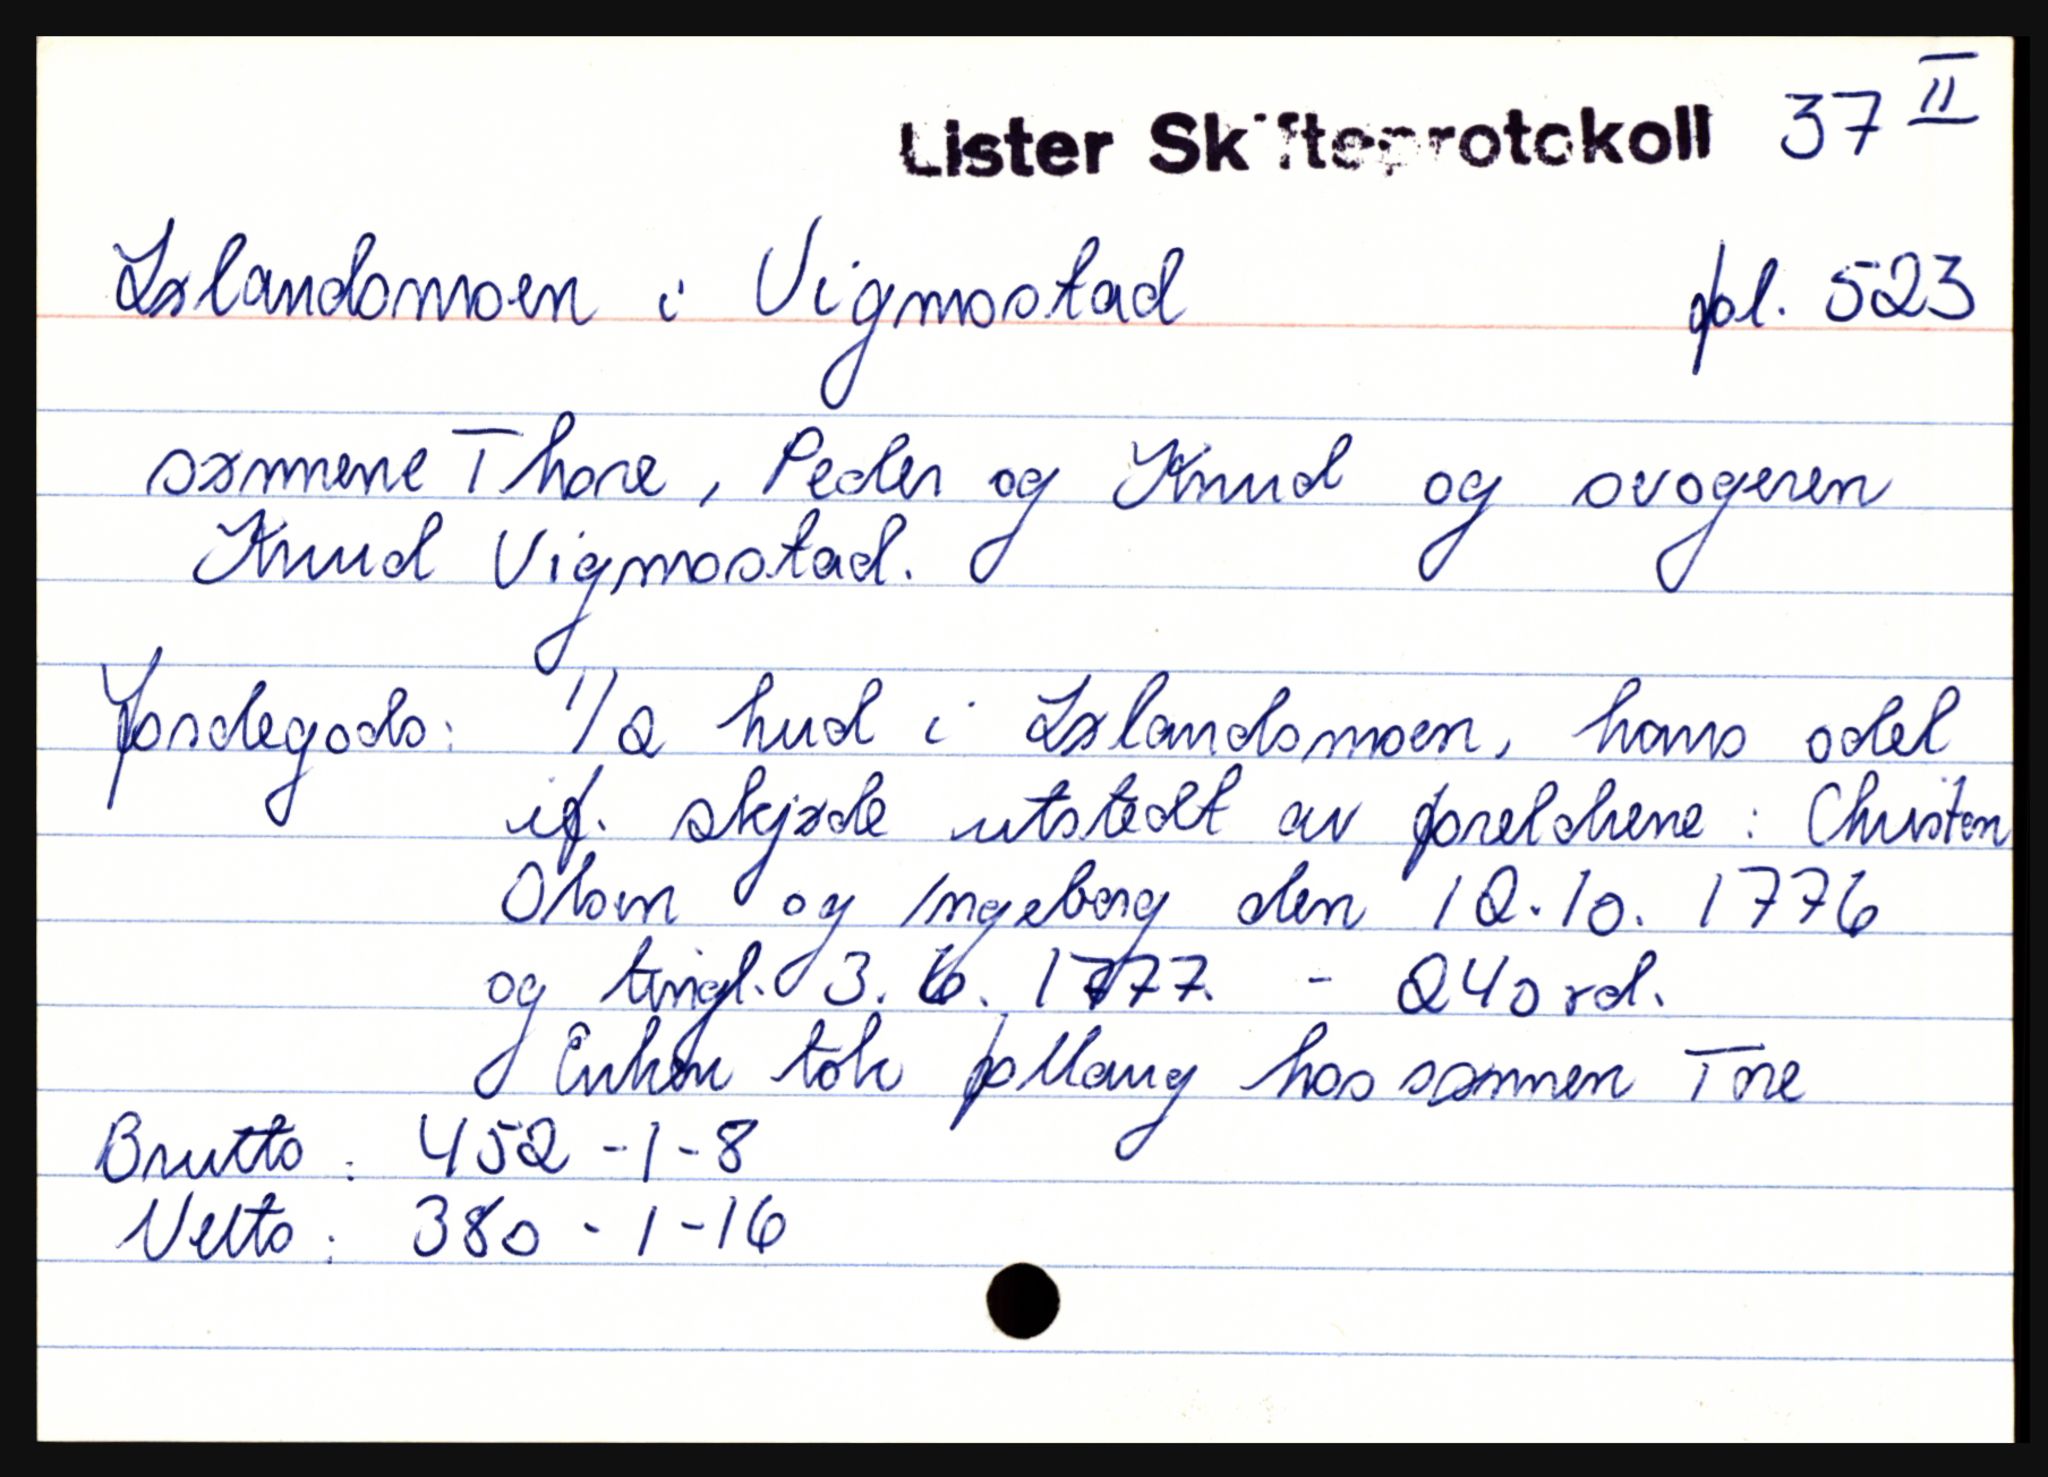 Lister Skifteprotokoll 37 II
Løland​smoen i Vigmostad fol. 523
sønnene Thore, Peder og Knud og svogeren
Knud Vigmostad.
Jordegods: 1/2 hud i Lølandsmoen, hans odel
if. skjøde utstedt av foreldrene: Christen
Olsen og Ingeborg den 12.10.1776
og tingl. 3.6.1777. - 240 rd.
Enken tok follaug hos sønnen Tore
Brutto: 452-1-8
Netto: 380-1-16